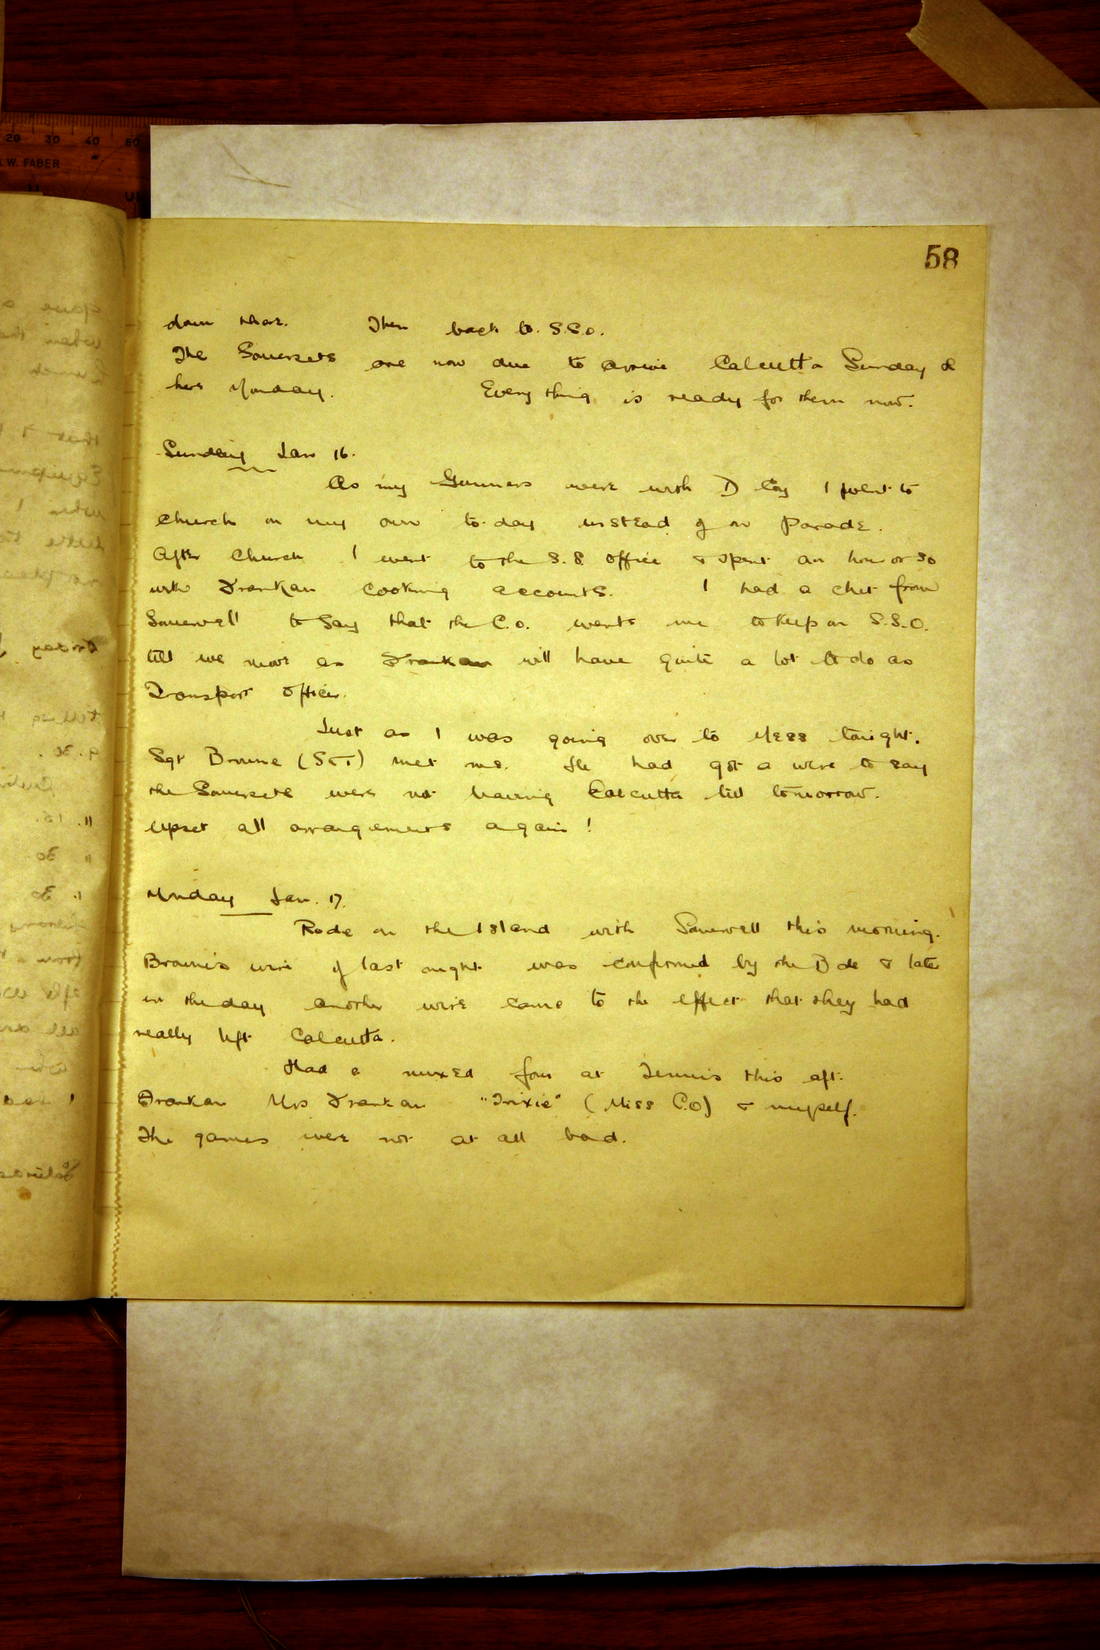 58
down there. Then back to S.S.O.
The Somersets are now due to arrive Calcutta Sunday &
here Monday. Everything is ready for them now.
Sunday Jan 16.
As my Gunners were with D Coy I went to
church on my own to-day instead of on Parade.
After Church I went to the S.S. office & spent an hour or so
with Frankau cooking accounts. I had a chit from
Somerell to say that the C.O. wants me to keep on S.S.O.
till we move as Frankau will have quite a lot to do as
Transport Officer.
Just as I was going over to Mess tonight.
Sgt Browne (S&T) met me. He had got a wire to say
the Somersets were not leaving Calcutta till tomorrow.
Upset all arrangements again!
Monday Jan. 17.
Rode on the Island with Somerell this morning.
Browne's wire of last night was confirmed by the Bde & later
in the day another wire came to the effect that they had
really left Calcutta.
Had a mixed four at Tennis this aft.
Frankau Mrs Frankau "Trixie" (Miss C.O) & myself.
The games were not at all bad.
20 30 40
W. FABER